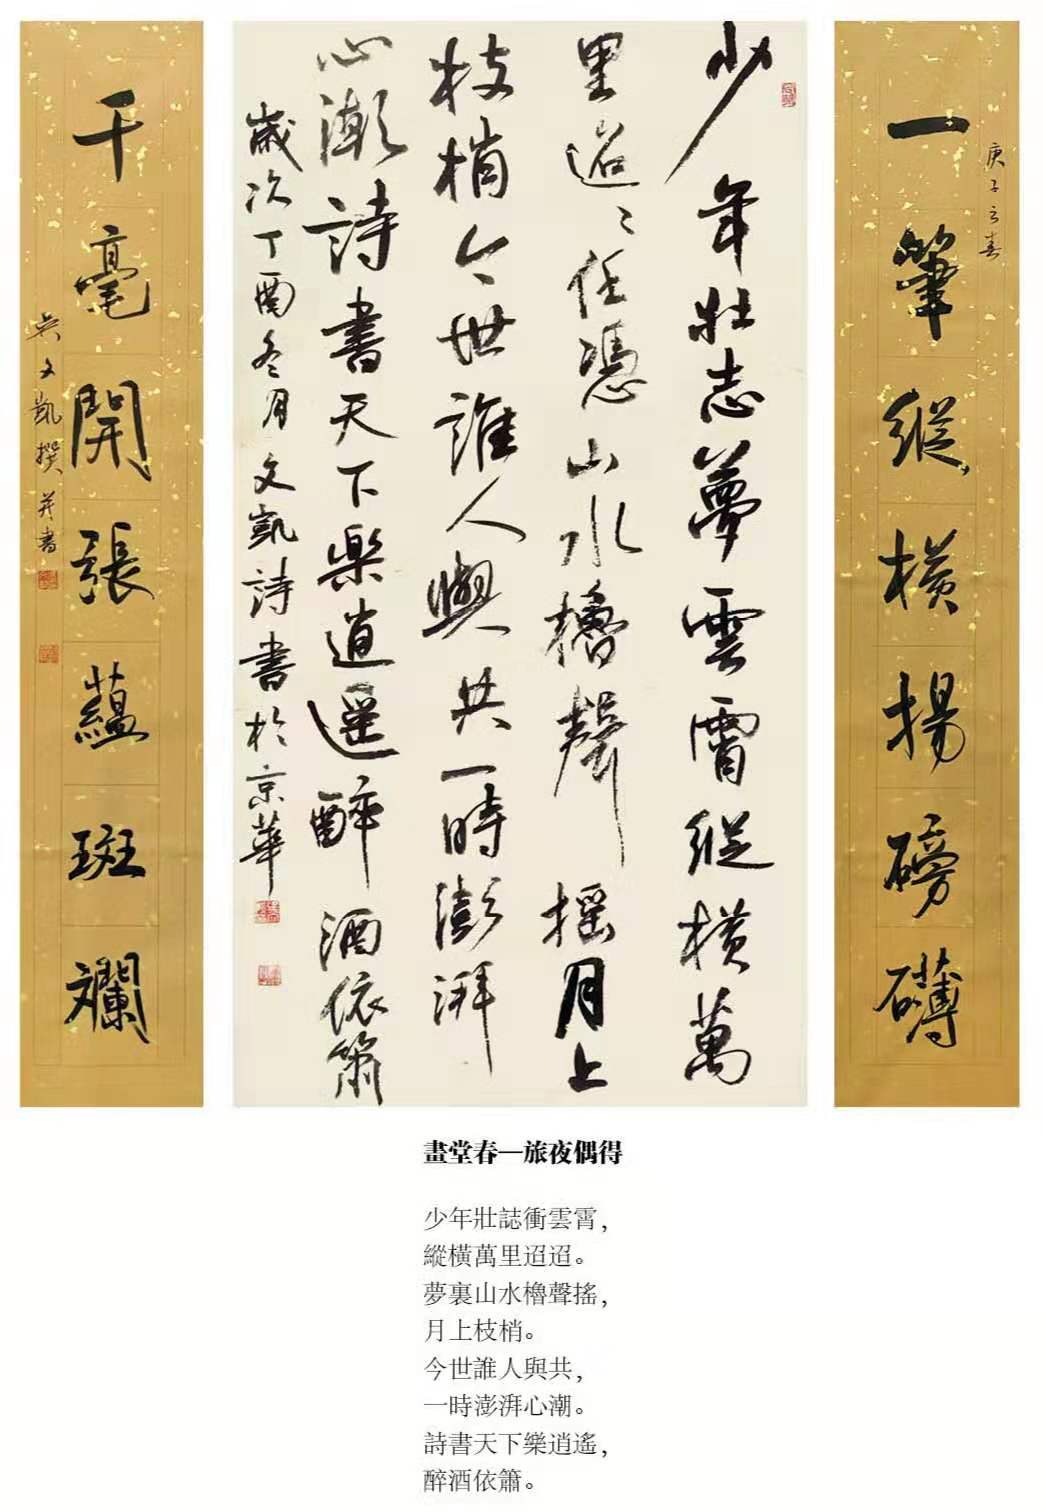 庚子立春
一筆縱橫揚磅礴
少年壯志夢雲霄縱橫萬
里迢〻任憑山水櫓聲搖月上
枝梢今世誰人與共一時澎湃
心潮詩書天下樂逍遙醉酒依簫
歲次丁酉冬月文凱詩書於京華
千毫開張蘊斑斕
吳文凱撰并書
畫堂春—旅夜偶得
少年壯誌衝雲霄，
縱橫萬里迢迢。
夢裏山水櫓聲搖，
月上枝梢。
今世誰人與共，
一時澎湃心潮。
詩書天下樂逍遙，
醉酒依簫。